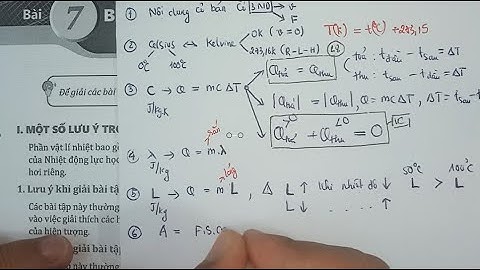 Bài 7 B
Để giải các bài
I. MỘT SỐ LƯU Ý TRO
Phần vật lí nhiệt bao gồ
của Nhiệt động lực học
hơi riêng.
1. Lưu ý khi giải bài tập
Các bài tập này thường
vào việc giải thích các h
của hiện tượng.
giải bài tập
này thường
① Nội dung cơ bản
② Celsius ↔ Kelvine
0°C 100°C
OK (v = 0)
273,16K (R-L-H)
T(K) = t(°C) + 273,15
③ C → Q = mCΔT
J/kg.K
Qtoả = Qthu
toả: tđầu - tsau = ΔT
thu: tsau - tđầu = ΔT
|Qtoả| = |Qthu|, Q = mCΔT, ΔT = tsau - t
Qtoả + Qthu = 0
④ λ → Q = m.λ
J/kg
rắn
⑤ L → Q = mL, Δ L↑ khi nhiệt độ ↓ 50°C L > 100°C L
J/kg
lỏng
L↓ ..... ↑
⑥ A = F.S.